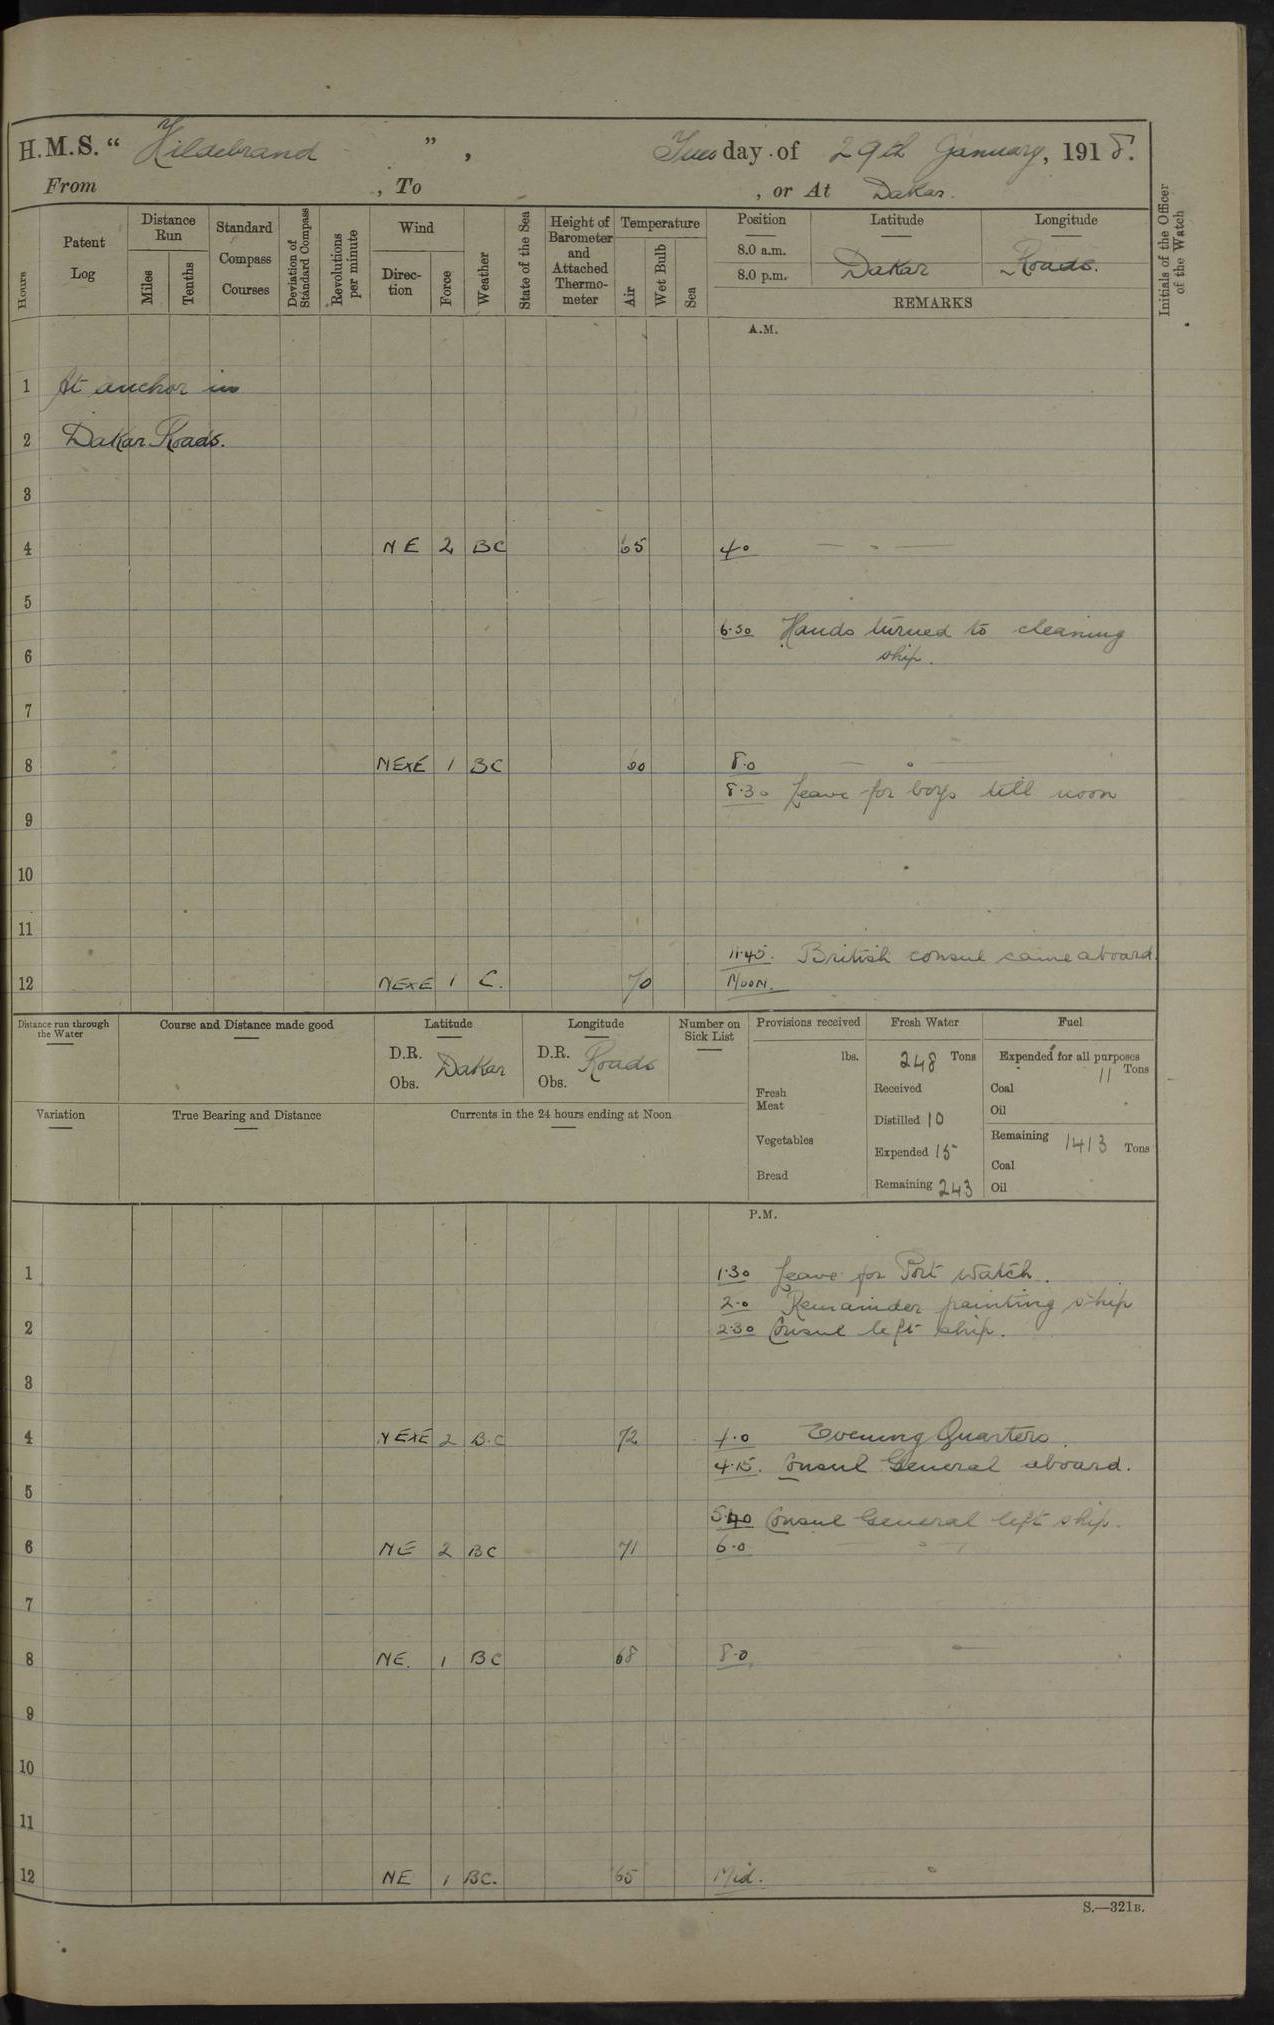 H.M.S. “ Hildebrand ” , Tuesday of 29th January, 1918.
From , To , or At Dakar.
Hours
Patent Log
Distance Run
Miles
Tenths
Standard Compass Courses
Deviation of Standard Compass
Revolutions per minute
Wind
Direc-tion
Force
Weather
State of the Sea
Height of Barometer and Attached Thermo-meter
Temperature
Air
Wet Bulb
Sea
Position
8.0 a.m.
8.0 p.m.
Latitude
Dakar
Longitude
Roads.
REMARKS
Initials of the Officer of the Watch
A.M.
1 At anchor in
2 Dakar Roads.
3
4 NE 2 BC 65 4.0
5
6.30 Hands turned to cleaning
6 ship.
7
8 NExE 1 BC 8.0
8.30 Leave for boys till noon
9
10
11
11.45. British consul came aboard.
12 NExE 1 C. 70 Noon.
Distance run through the Water
Course and Distance made good
Latitude
D.R. Obs. Dakar
Longitude
D.R. Obs. Roads
Number on Sick List
Provisions received
lbs.
Fresh Meat
Vegetables
Bread
Fresh Water
248 Tons
Received
Distilled 10
Expended 15
Remaining 243
Fuel
Expended for all purposes
11 Tons
Coal
Oil
Remaining 1413 Tons
Coal
Oil
Variation
True Bearing and Distance
Currents in the 24 hours ending at Noon
P.M.
1 1.30 Leave for Port Watch.
2.0 Remainder painting ship
2 2.30 Consul left ship.
3
4 NExE 2 B.C 72 4.0 Evening Quarters.
4.15. Consul General aboard.
5
5.40 Consul General left ship.
6 NE 2 BC 71 6.0
7
8 NE. 1 BC 68 8.0
9
10
11
12 NE 1 BC. 65 Mid.
S.—321B.